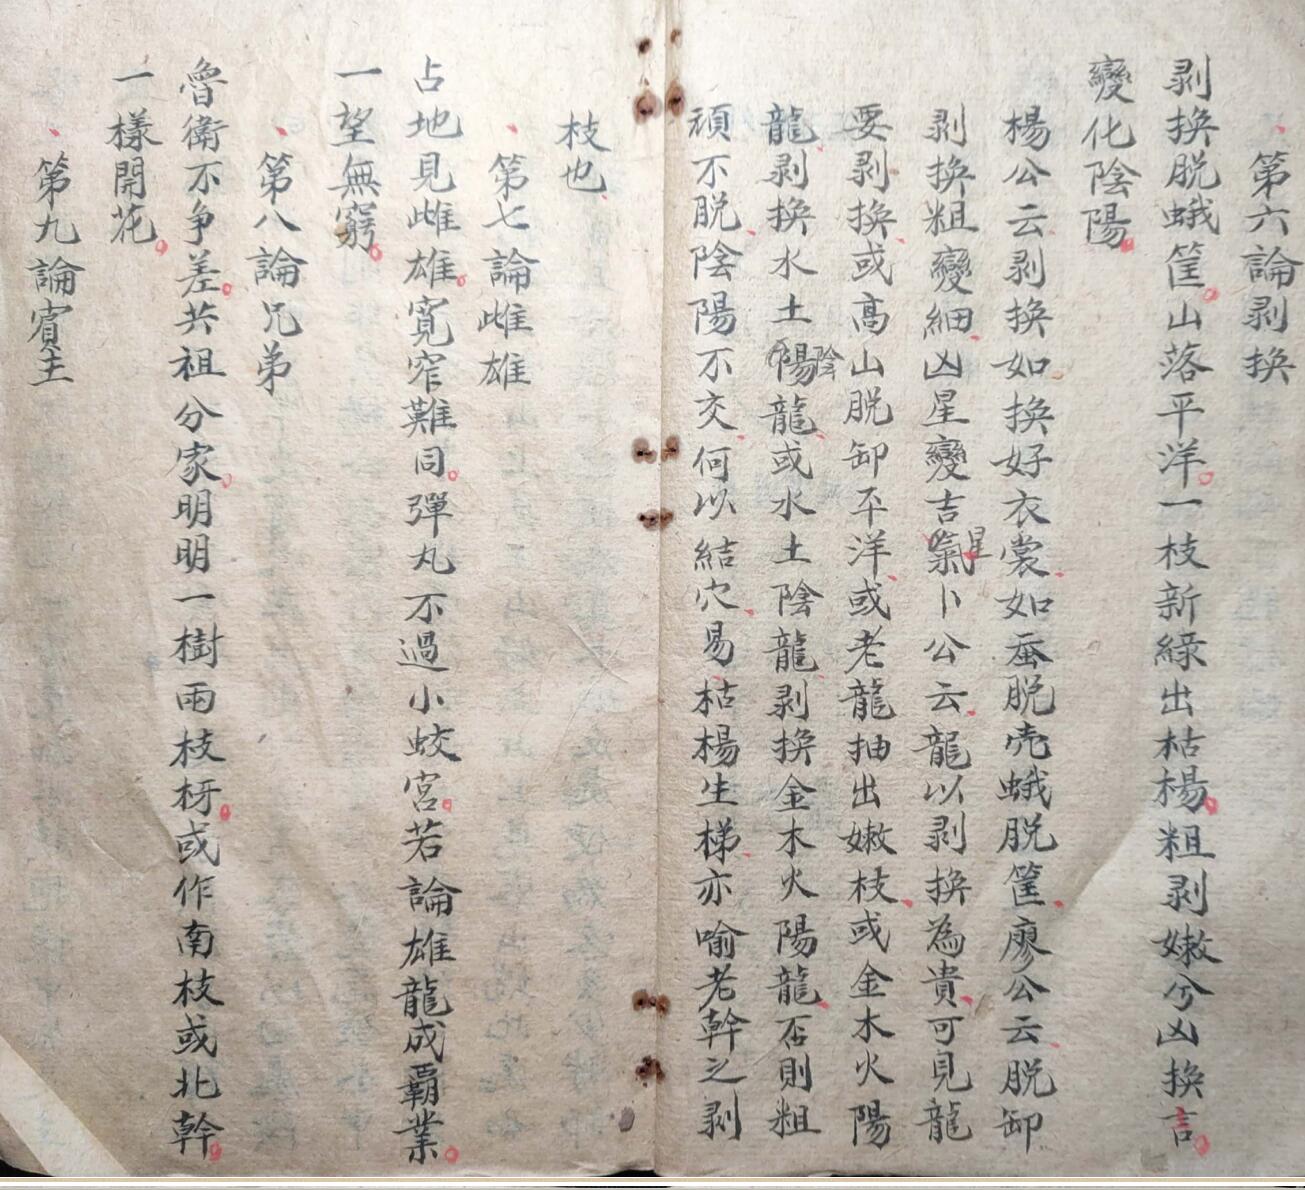 第六論剥換
剥換脱蛾筐山落平洋一枝新綠出枯楊粗剥嫩兮凶換言
變化陰陽
楊公云剥換如換好衣裳如蚕脱壳蛾脱筐廖公云脱卸
剥換粗變細凶星變吉氣星卜公云龍以剥換為貴可見龍
要剥換或高山脱卸平洋或老龍抽出嫩枝或金木火陽
龍剥換水土陽陰龍或水土陰龍剥換金木火陽龍否則粗
頑不脱陰陽不交何以結穴易枯楊生梯亦喻老幹之剥
枝也
第七論雌雄
占地見雌雄寬窄難同彈丸不過小蛟宮若論雄龍成覇業
一望無窮
第八論兄弟
魯衛不争差共祖分家明明一樹兩枝枒或作南枝或北幹
一樣開花
第九論賓主